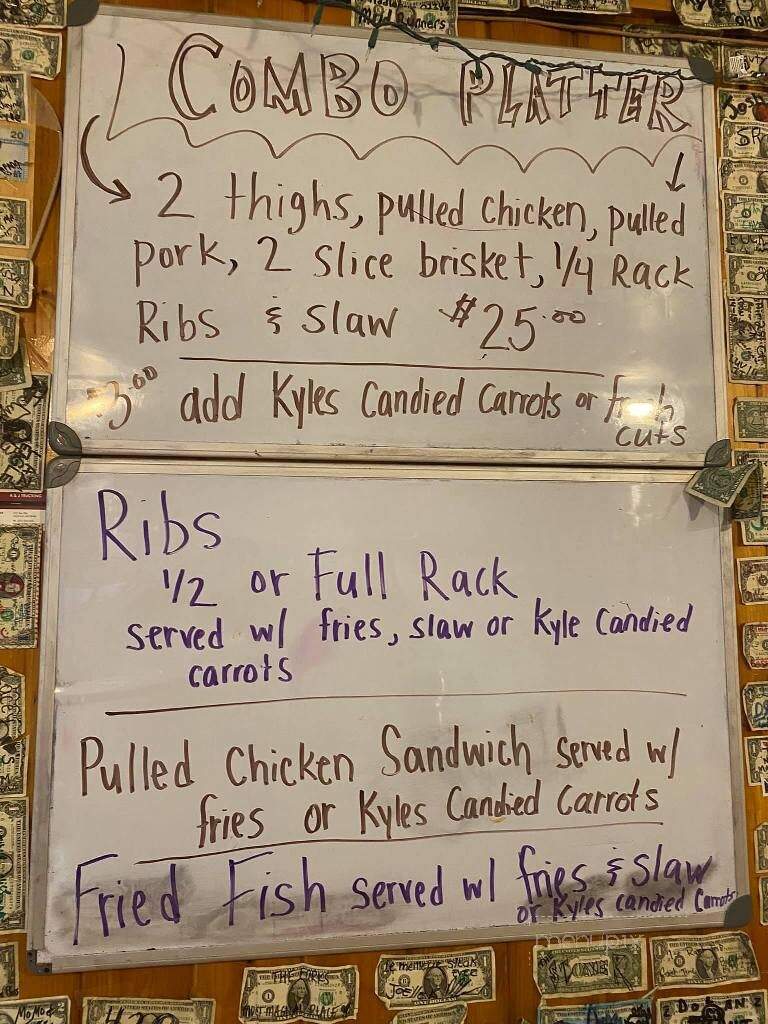 COMBO PLATTER
2 thighs, pulled chicken, pulled
pork, 2 slice brisket, 1/4 Rack
Ribs & slaw $25.00
$3.00 add Kyles Candied Carrots or fresh
cuts
Ribs
1/2 or Full Rack
served w/ fries, slaw or Kyle Candied
carrots
Pulled Chicken Sandwich served w/
fries or Kyles Candied Carrots
Fried Fish served w/ fries & slaw
or Kyles candied Carrots